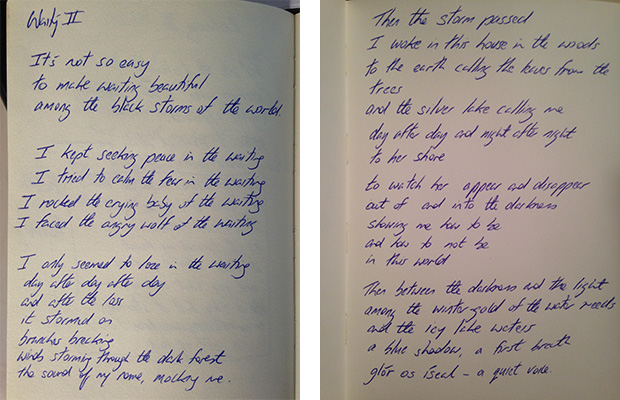 Waiting II
It's not so easy
to make waiting beautiful
among the black storms of the world.
I kept seeking peace in the waiting
I tried to calm the fear in the waiting
I rocked the crying baby of the waiting
I faced the angry wolf of the waiting
I only seemed to lose in the waiting
day after day after day
and after the loss
it stormed on
branches breaking
winds storming through the dark forest
the sound of my name, mocking me.
Then the storm passed
I woke in this house in the woods
to the earth calling the leaves from the
trees
and the silver lake calling me
day after day and night after night
to her shore
to watch her appear and disappear
out of and into the darkness
showing me how to be
and how to not be
in this world
Then between the darkness and the light
among the winter gold of the water reeds
and the icy lake waters
a blue shadow, a first breath
glór os íseal – a quiet voice.